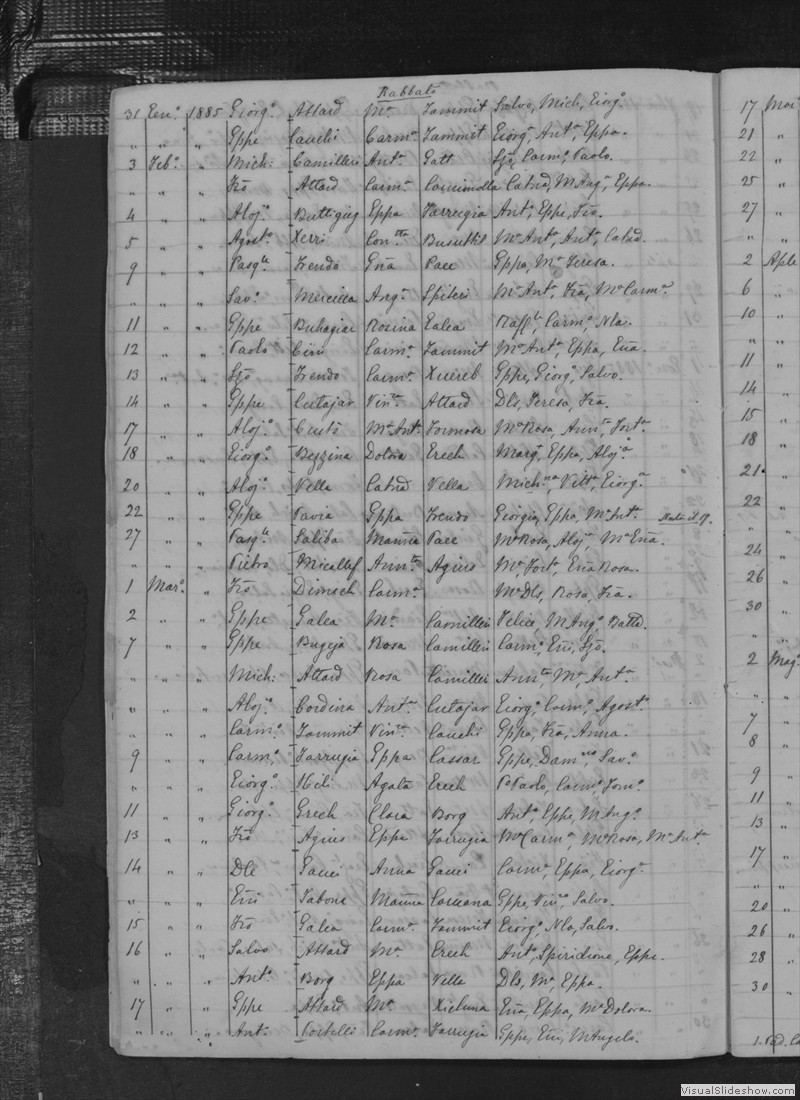 Rabbato
31 Gen.o 1885 Giorg.o Attard M.a Zammit Salvo, Mich, Giorg.a
" " " Gppe Cauchi Carm.a Zammit Giorg.a, Ant.a, Gppa.
3 Feb.o " Mich: Camilleri Ant.a Gatt Carm.a, Paolo.
" " " Frco Attard Carm.a Caterd, M Ang.a, Gppa.
4 " " Aloj.o Buttigieg Gppa Farrugia Ant.o, Gppe, Fra.
5 " " Agost.o Xerri Con.tta Busuttil M.a Ant.a, Ant.o, Catad.
9 " " Pasq.le Zrendo Ena Pace Gppa, M.a Teresa.
" " " Sav.o Mercieca Ang.a Spiteri M.a Ant.a, Fra, M.a Carm.a
11 " " Gppe Buhagiar Rosina Galea Raff.le, Carm.o, Nla.
12 " " Paolo Cini Carm.a Zammit M.a Ant.a, Gppa, Ena.
13 " " Zrendo Carm.a Xuereb Gppe, Giorg.o, Salvo.
14 " " Gppe Cutajar Vin.za Attard Dls, Teresa, Fra.
17 " " Aloj.o M.a Ant.a Formosa M.a Rosa, Ann.ta, Fort.a
18 " " Giorg.o Bezzina Dolora Grech Marg.a, Gppa, Aloj.a
20 " " Aloj.o Vella Catad Vella Mich.na, Vitt.a, Giorg.a
22 " " Gppe Pavia Gppa Zrendo Giorgia, Gppa, M.a Ant.a
27 " " Pasq.le Saliba Pace M.a Rosa, Aloj.a, M.a Ena.
" " " Pietro Micallef Ann.ta Agius M.a, Fort.a, Ena Rosa.
1 Mar.o " Frco Dimech Carm.a M.a Dls, Rosa, Fra.
2 " " Gppe Galea M.a Camilleri Felice, M Ang.o, Batta.
7 " " Gppe Bugeja Rosa Camilleri Carm.o, Eni,
" " " Mich: Attard Rosa Camilleri Ann.ta, M.a, Ant.a
" " " Aloj.o Cordina Ant.a Cutajar Giorg.o, Carm.o, Agost.o
" " " Carm.o Zammit Vin.za Cauchi Gppa, Fra, Anna.
9 " " Carm.o Farrugia Gppa Cassar Gppe, Sav.o
" " " Giorg.o Hili Agata Grech Paolo, Carm.o,
11 " " Giorg.o Grech Clora Borg Ant.o, Gppe, M Ang.o
13 " " Frco Agius Gppa Farrugia M.a Carm.a, M.a Rosa, M.a Ant.a
14 " " Dle Gauci Anna Gauci Carm.a, Gppa, Giorg.a
" " " Eni Tabone Gppe, Vin.zo, Salvo.
15 " " Frco Galea Carm.a Zammit Giorg.o, Nlo, Salvo.
16 " " Salvo Attard M.a Grech Ant.o, Spiridione, Gppe.
" " " Ant.o Borg Gppa Vella Dls, M.a, Gppa.
17 " " Gppe Attard M.a Xicluna Ena, Gppa, M.a Dolora.
" " " Ant.o Portelli Carm.a Farrugia Gppe, Eni, M Angelo.
17
21 "
22 "
25 "
27 "
" "
2 Aple
6 "
10 "
" "
11 "
14 "
15 "
18 "
21 "
22 "
" "
24 "
26 "
30 "
" "
2 Mag.o
" "
7 "
8 "
9 "
11 "
13 "
17 "
" "
20 "
26 "
28 "
30 "
VisualSlideshow.com